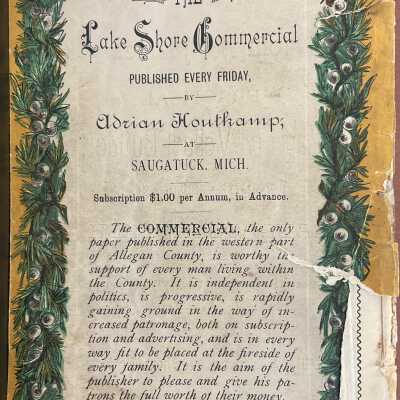 THE
Lake Shore Commercial
PUBLISHED EVERY FRIDAY,
BY
Adrian Houtkamp,
AT
SAUGATUCK, MICH.
Subscription $1.00 per Annum, in Advance.
The COMMERCIAL, the only
paper published in the western part
of Allegan County, is worthy the
support of every man living within
the County. It is independent in
politics, is progressive, is rapidly
gaining ground in the way of in-
creased patronage, both on subscrip-
tion and advertising, and is in every
way fit to be placed at the fireside of
every family. It is the aim of the
publisher to please and give his pa-
trons the full worth of their money.